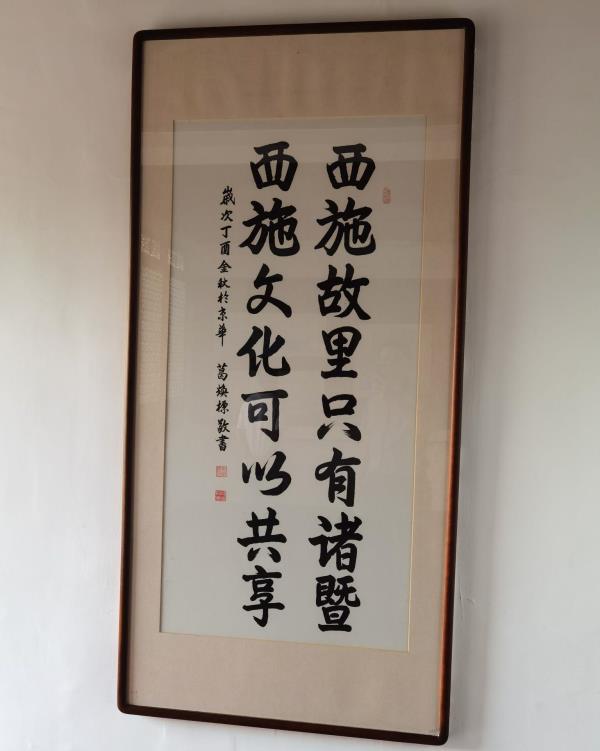 西施故里只有诸暨
西施文化可以共享
岁次丁酉金秋於京华 葛焕标敬书